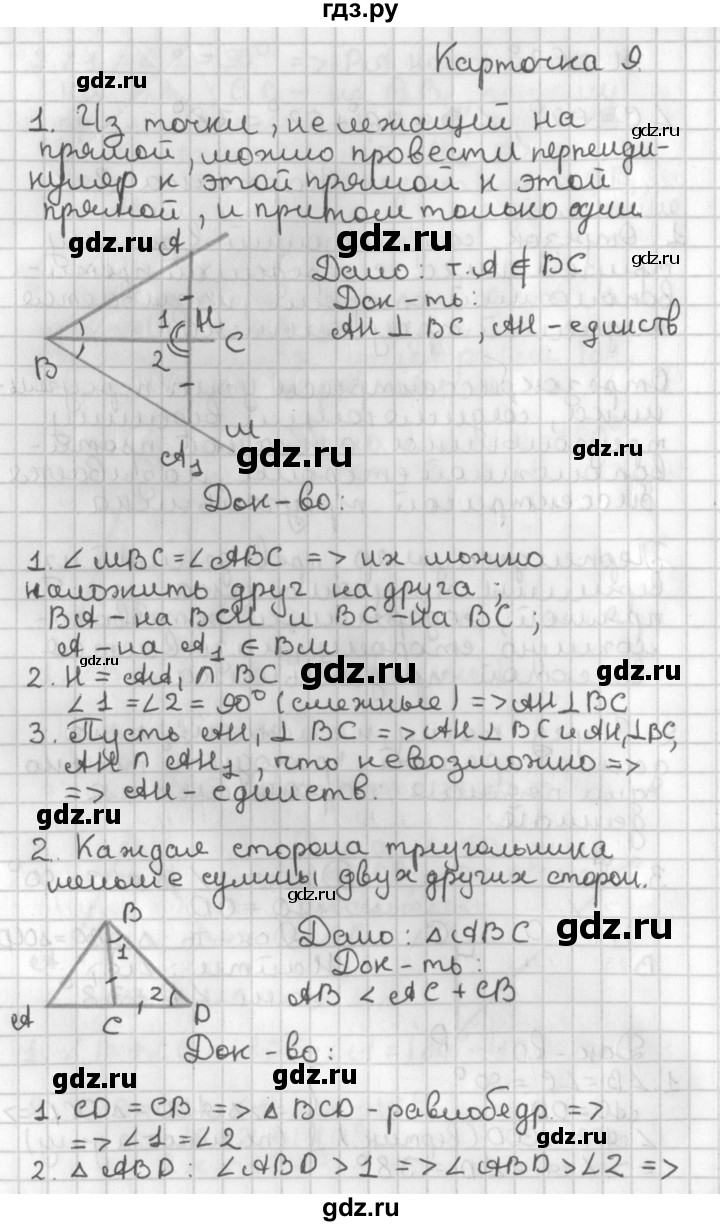 гдз.ру
Карточка 9.
gdz.ru
1. Из точки, не лежащий на
gdz.ru
прямой, можно провести перпенди-
куляр к этой прямой к этой
прямой, и притом только один.
gdz.ru
gdz.ru
gdz.ru
A
Дано: т.А ∉ BC
Док-ть:
1 H
AH ⊥ BC, AH - единств
C
2
B
M
A₁
gdz.ru
gdz.ru
Док-во:
1. ∠MBC = ∠ABC => их можно
наложить друг на друга;
BA - на BM и BC - на BC;
A - на A₁ ∈ BM
gdz.ru
gdz.ru
gdz.ru
2. H = AA₁ ∩ BC
∠1 = ∠2 = 90° (смежные) => AH ⊥ BC
3. Пусть AH₁ ⊥ BC => AH ⊥ BC и AH₁ ⊥ BC,
AH ∩ AH₁, что невозможно =>
=> AH - единств.
gdz.ru
gdz.ru
2. Каждая сторона треугольника
меньше суммы двух других сторон.
gdz.ru
gdz.ru
B
Дано: △ABC
1
Док-ть:
AB < AC + CB
2
A C D
Док-во:
gdz.ru
gdz.ru
1. CD = CB => △BCD - равнобедр. =>
=> ∠1 = ∠2
gdz.ru
2. △ABD: ∠ABD > 1 => ∠ABD > ∠2 =>
gdz.ru
gdz.ru